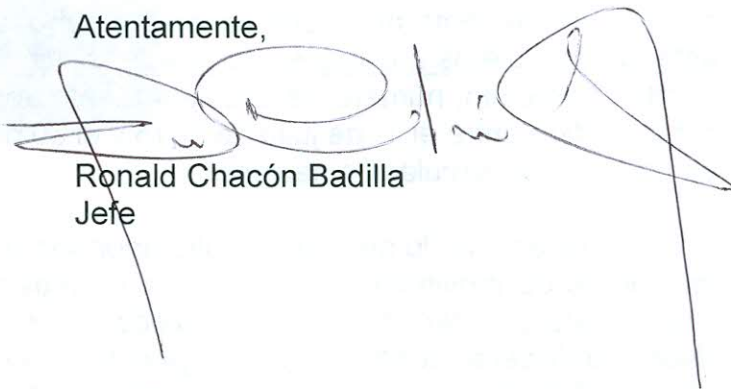 Atentamente,
Ronald Chacón Badilla
Jefe